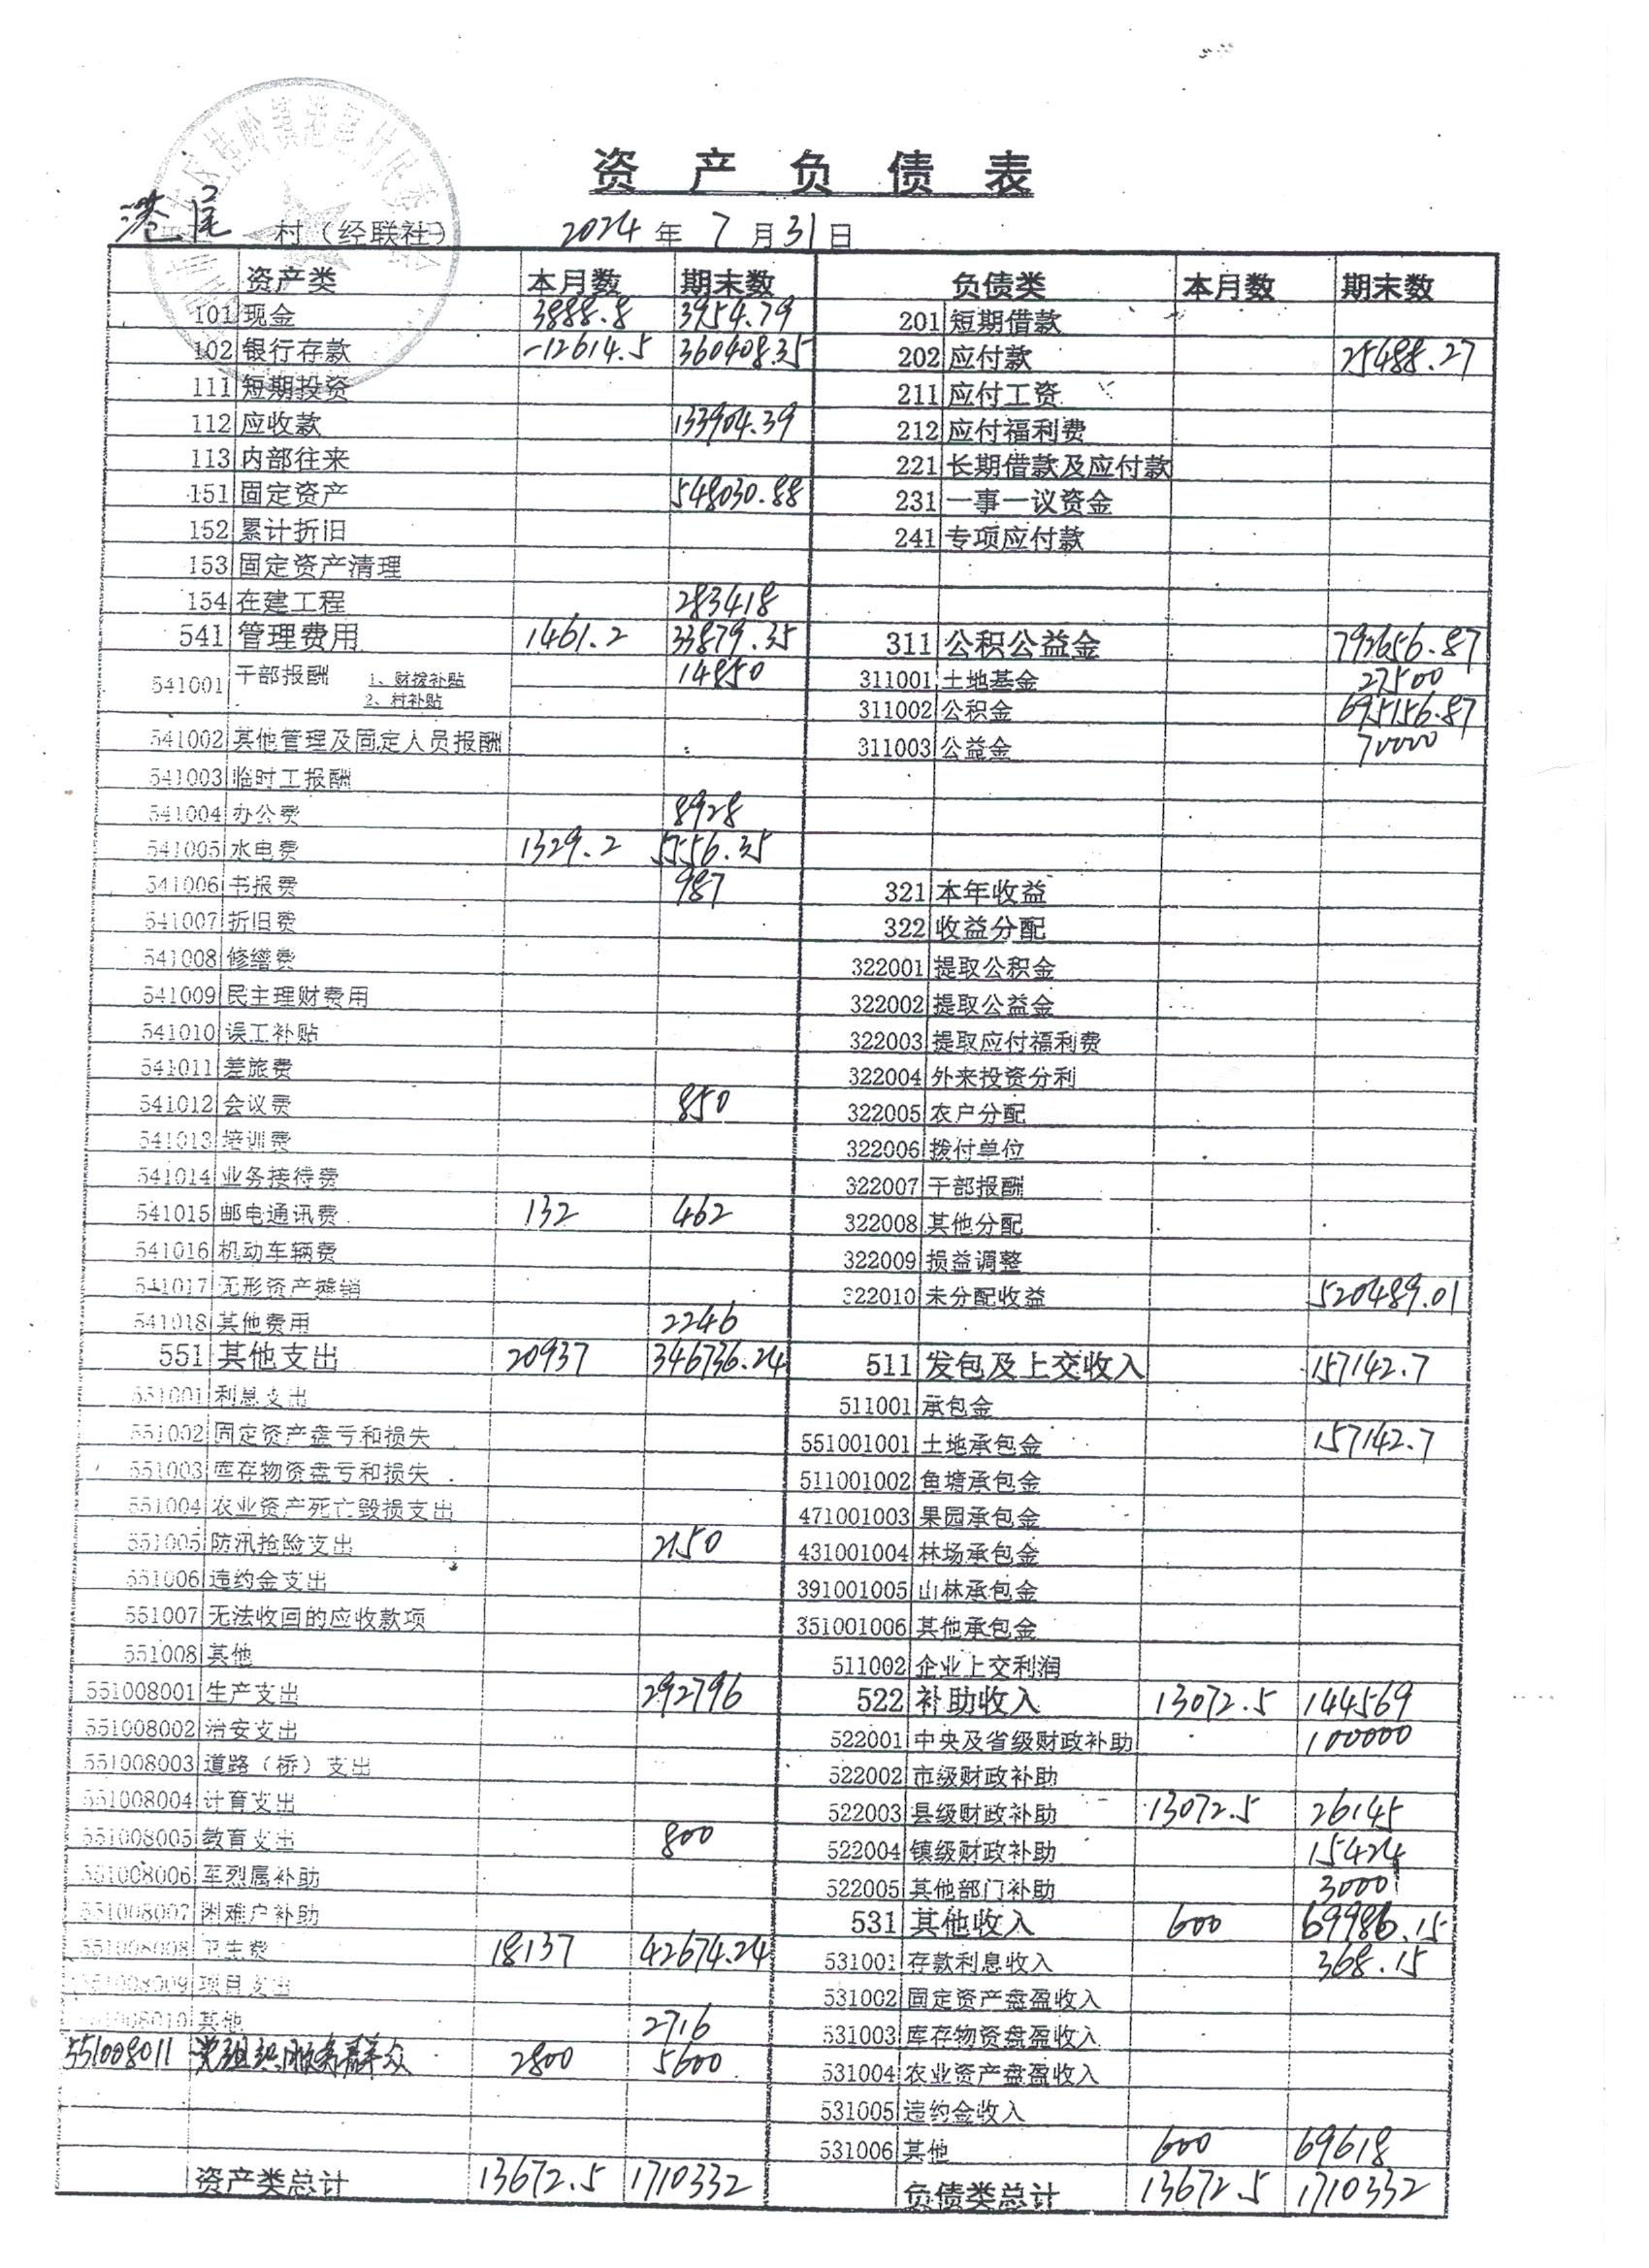 资产负债表
港尾 村（经联社） 2024 年 7 月 31 日
资产类 本月数 期末数 负债类 本月数 期末数
101 现金 3888.8 3954.79 201 短期借款
102 银行存款 -12614.5 360408.35 202 应付款 25488.27
111 短期投资 211 应付工资
112 应收款 133904.39 212 应付福利费
113 内部往来 221 长期借款及应付款
151 固定资产 548030.88 231 一事一议资金
152 累计折旧 241 专项应付款
153 固定资产清理
154 在建工程 283418
541 管理费用 1461.2 33879.35 311 公积公益金 792656.87
541001 干部报酬 1、财拨补贴 14850 311001 土地基金 27500
2、村补贴 311002 公积金 695156.87
541002 其他管理及固定人员报酬 311003 公益金 70000
541003 临时工报酬
541004 办公费 8928
541005 水电费 1329.2 5556.35
541006 书报费 987 321 本年收益
541007 折旧费 322 收益分配
541008 修缮费 322001 提取公积金
541009 民主理财费用 322002 提取公益金
541010 误工补贴 322003 提取应付福利费
541011 差旅费 322004 外来投资分利
541012 会议费 850 322005 农户分配
541013 培训费 322006 拨付单位
541014 业务接待费 322007 干部报酬
541015 邮电通讯费 132 462 322008 其他分配
541016 机动车辆费 322009 损益调整
541017 无形资产摊销 322010 未分配收益 520489.01
541018 其他费用 2246
551 其他支出 20937 346736.24 511 发包及上交收入 157142.7
551001 利息支出 511001 承包金
551002 固定资产盘亏和损失 551001001 土地承包金 157142.7
551003 库存物资盘亏和损失 511001002 鱼塘承包金
551004 农业资产死亡毁损支出 471001003 果园承包金
551005 防汛抢险支出 2150 431001004 林场承包金
551006 违约金支出 391001005 山林承包金
551007 无法收回的应收款项 351001006 其他承包金
551008 其他 511002 企业上交利润
551008001 生产支出 292796 522 补助收入 13072.5 144569
551008002 治安支出 522001 中央及省级财政补助 100000
551008003 道路（桥）支出 522002 市级财政补助
551008004 计育支出 522003 县级财政补助 13072.5 26145
551008005 教育支出 800 522004 镇级财政补助 15424
551008006 军烈属补助 522005 其他部门补助 3000
551008007 困难户补助 531 其他收入 600 69986.15
551008008 卫生费 18137 42674.24 531001 存款利息收入 368.15
551008009 项目支出 531002 固定资产盘盈收入
551008010 其他 2716 531003 库存物资盘盈收入
551008011 党组织服务群众 2800 5600 531004 农业资产盘盈收入
531005 违约金收入
531006 其他 600 69618
资产类总计 13672.5 1710332 负债类总计 13672.5 1710332